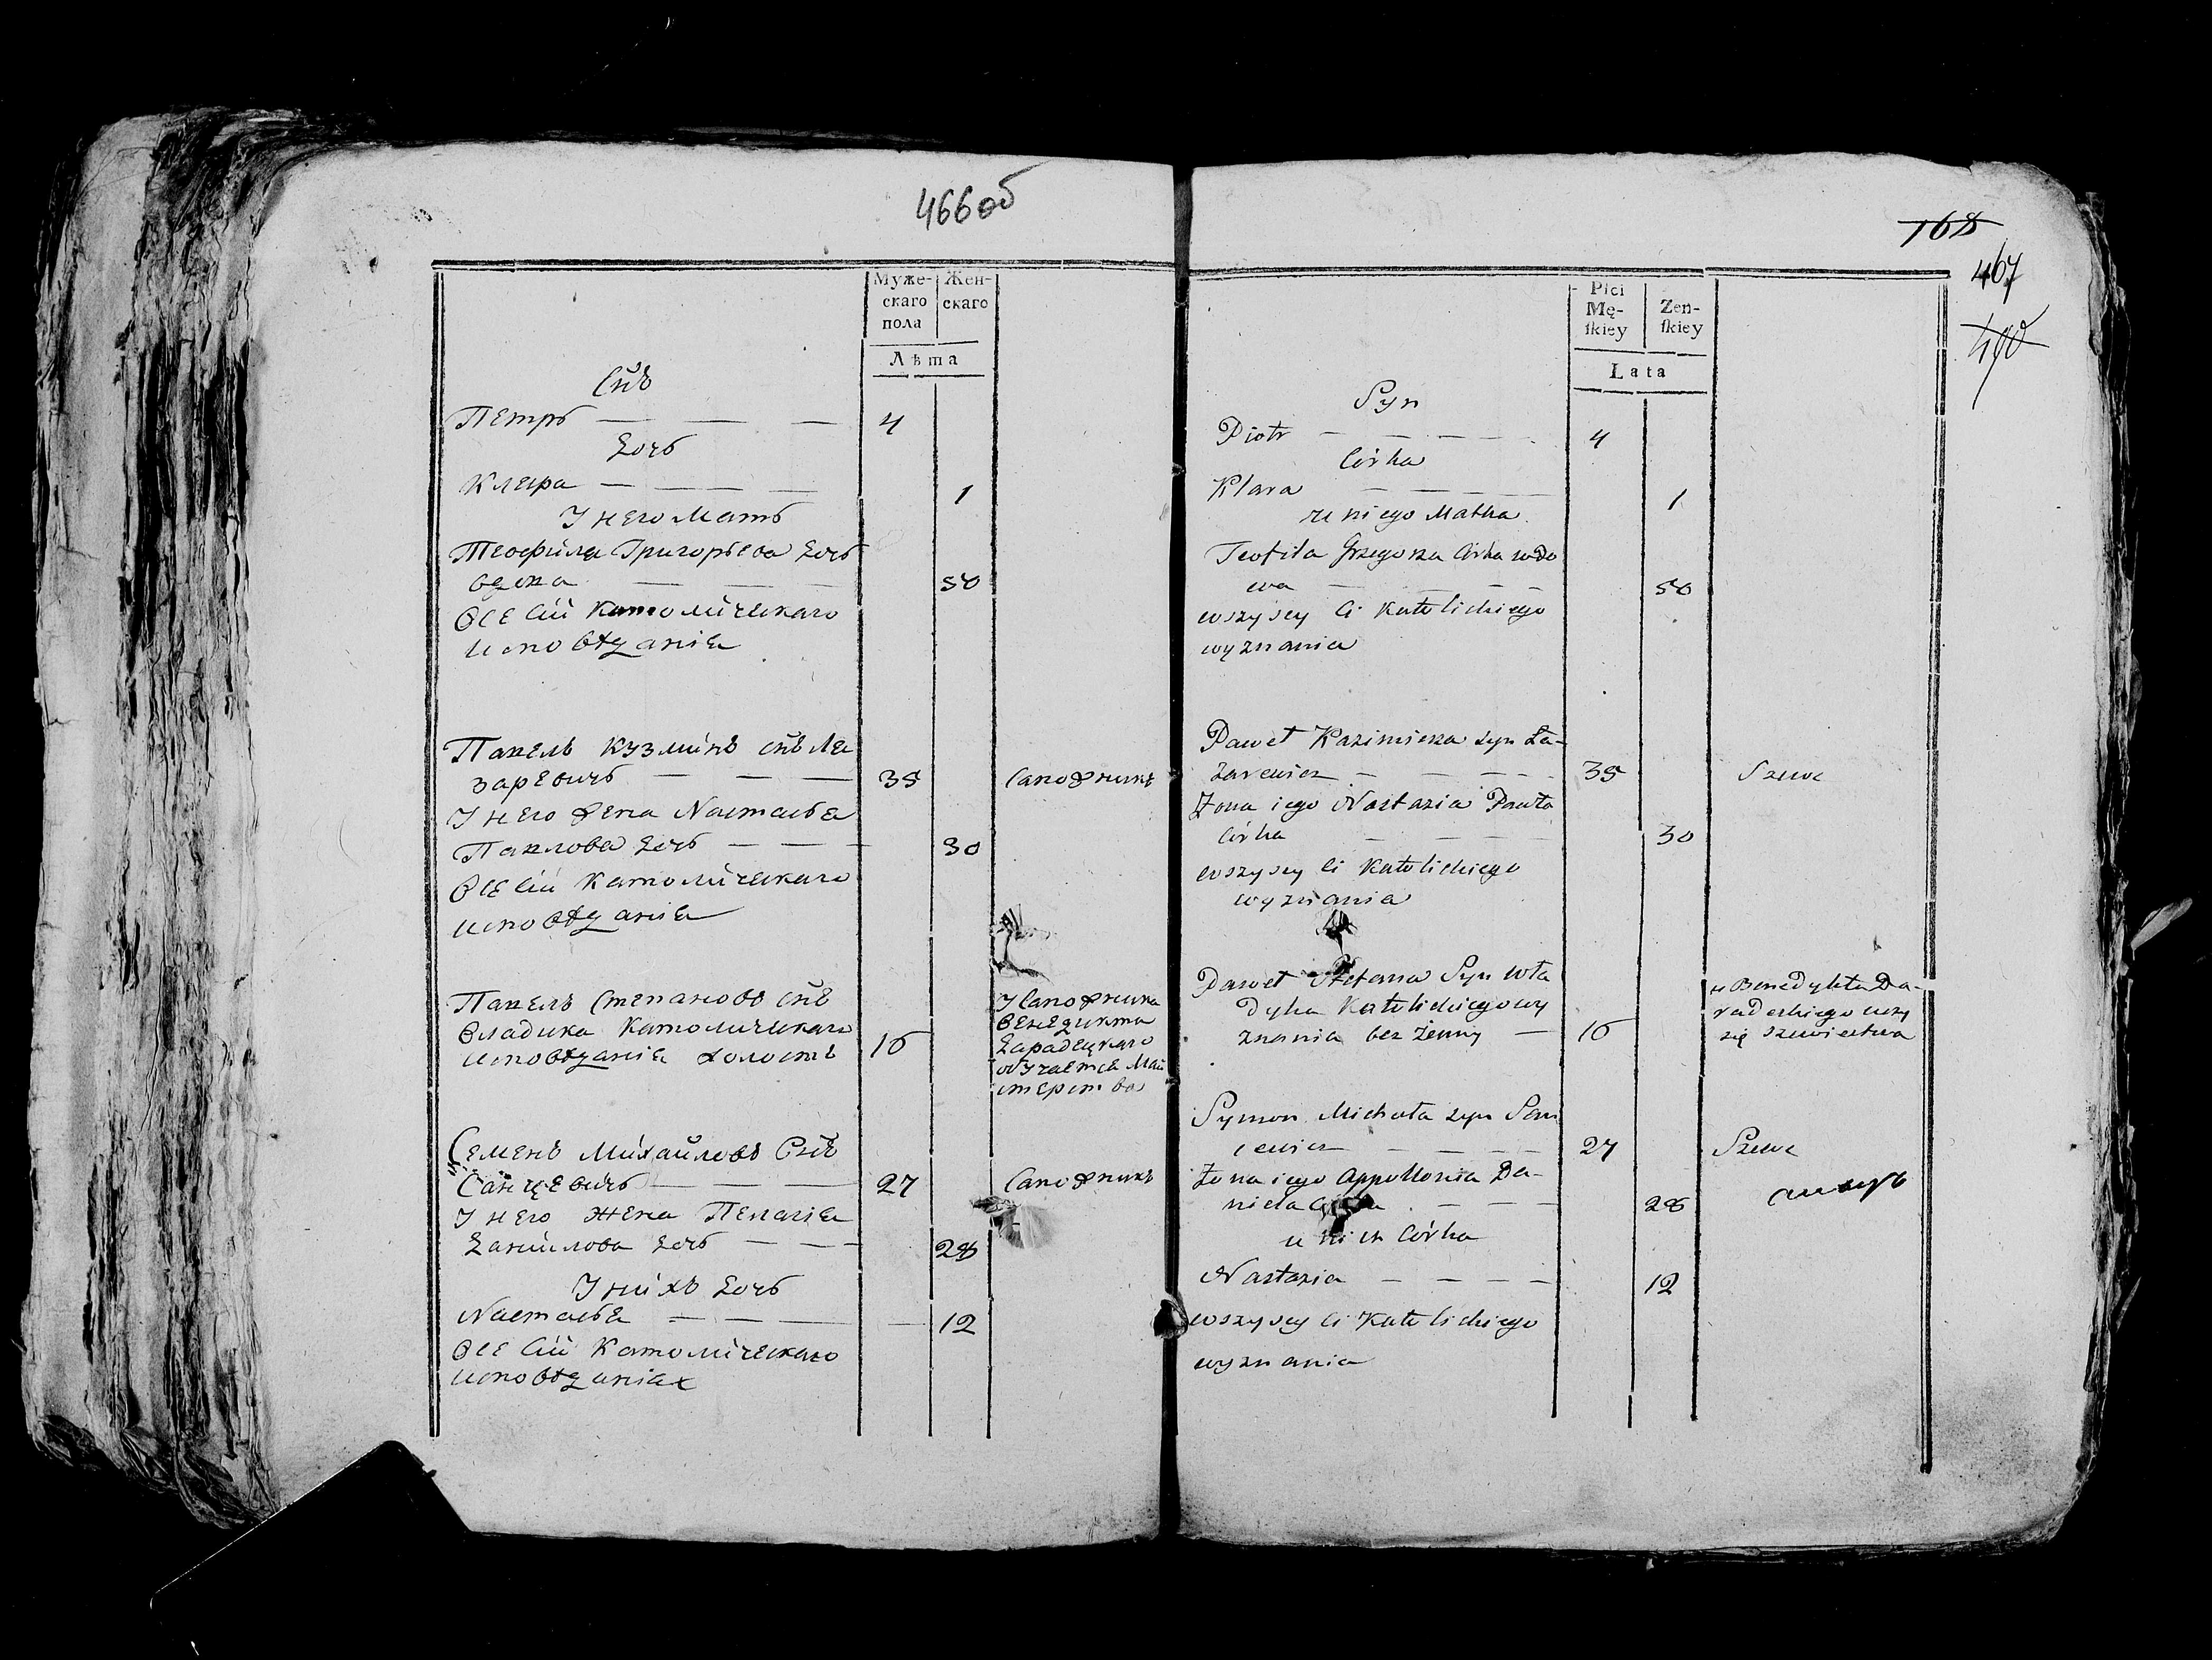 466об
Муже-
скаго
пола
Жен-
скаго
Лѣта
Сйъ
Петръ — — — 4
Дочь
Клара — — — 1
У него Мать
Теофиля Григорьева дочь
вдова — — — 50
Все сіи Католическаго
исповѣданія
Павелъ Кузминъ сйъ Ла
заревичъ — — — 35 Сапожникъ
У него жена Настасья
Павлова дочь — — — 30
Все сіи Католическаго
исповѣданія
Павелъ Степановъ сйъ
Владика Католическаго
исповѣданія холостъ 16
У Сапожника
Венедикта
Дарадецкаго
обучается Май
стерства
Семенъ Михайловъ Сйъ
Санцевичъ — — — 27 Сапожникъ
У него жена Пелагія
Данилова дочь — — — 28
У нихъ дочь
Настасья — — — — 12
Все сіи Католическаго
исповѣданія
168
467
Płci
Mę-
skiey
Zen-
skiey
Lata
Syn
Piotr — — — — 4
Córka
Klara — — — — 1
u niego Matka
Teofila Grzegorza Córka wdo
wa — — — — 50
wszyscy ci Katolickiego
wyznania
Paweł Kazimierza syn Ła-
zarewicz — — — — 35 Szewc
Żona iego Nastazia Pawła
Córka — — — 30
wszyscy ci Katolickiego
wyznania
Paweł Stefana Syn Wła
dyka Katolickiego wy
znania bez żenny — 16
u Benedykta Da-
radeckiego uczy
się szewiectwa
Symon Michała syn San
cewicz — — — — 27 Szewc
Żona iego Appollonia Da-
niela Córka — — — 28
u nich Córka
Nastazia — — — — 12
wszyscy ci Katolickiego
wyznania